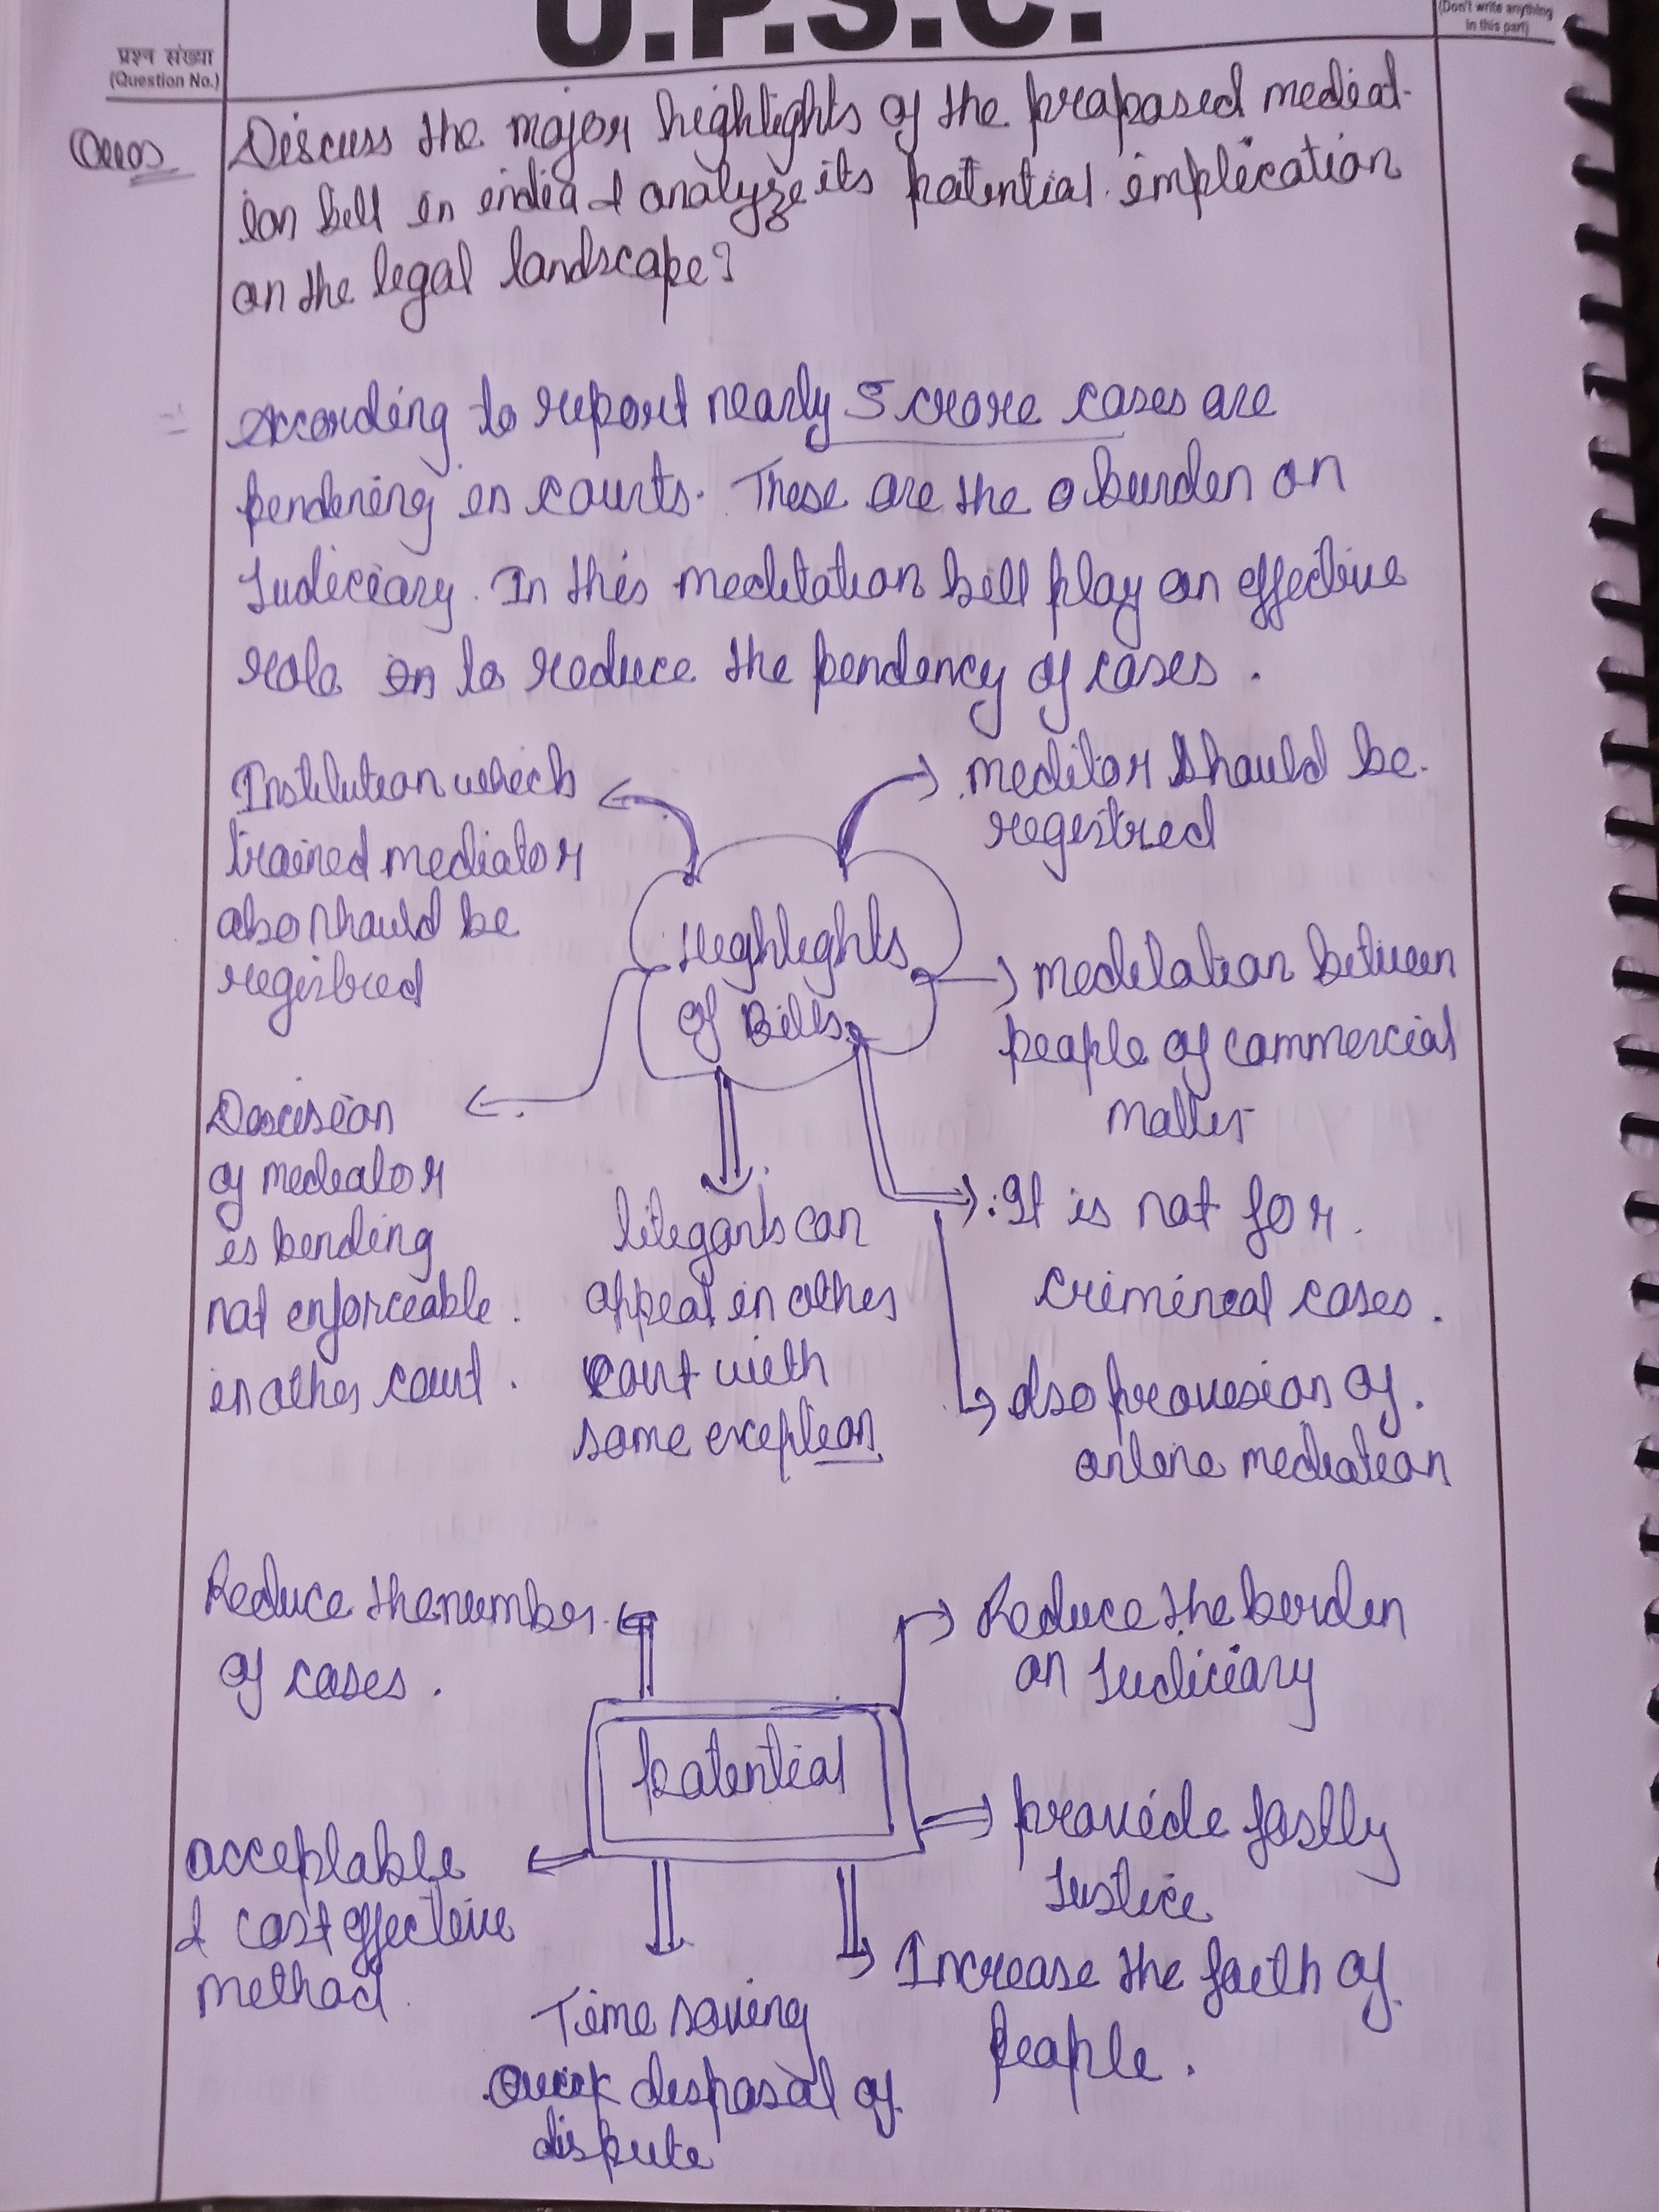 U.P.S.C.
(Don't write anything
in this part)
प्रश्न संख्या
(Question No.)
Discuss the major highlights of the proposed mediat-
ion bill in india & analyze its potential implication
on the legal landscape?
According to report nearly 5 crore cases are
pendening in courts. These are the burden on
Judiciary. In this meditation bill play an effective
role in to reduce the pendency of cases.
Institution which
trained mediator
also should be
registred
meditor should be
registred
Highlights
of Bills
meditation between
people of commercial
matter
Descision
of mediator
is bending
not enforceable
in other court.
litegants can
appeal in other
court with
some exception
It is not for
crimineal cases.
also provesion of
online mediation
Reduce the number
of cases.
Reduce the burden
on Judiciary
potential
provide fastly
Justice
acceptable
& cost effective
method.
Time saving
Quick disposal of
dispute
Increase the faith of
people.